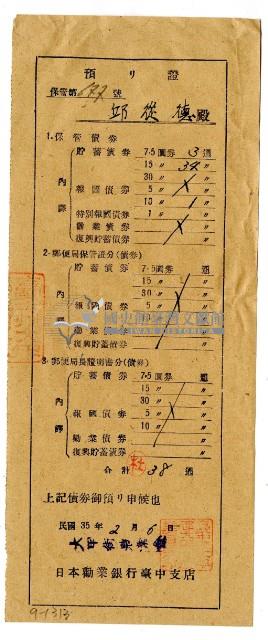 預り證
保管第 677 號
邱從德殿
1. 保管債券
內譯
貯蓄債券 7·5 圓券 3 通
15 〃 34 〃
30 〃 〃
報國債券 5 〃 〃
10 〃 1 〃
特別報國債券 1 〃 〃
勸業債券 〃
復興貯蓄債券 〃
2. 郵便局保管證分(債券)
內譯
貯蓄債券 7·5 圓券 通
15 〃 〃
30 〃 〃
報國債券 5 〃 〃
10 〃 〃
勸業債券 〃
復興貯蓄債券 〃
3. 郵便局長證明書分(債券)
內譯
貯蓄債券 7·5 圓券 通
15 〃 〃
30 〃 〃
報國債券 5 〃 〃
10 〃 〃
勸業債券 〃
復興貯蓄債券 〃
合計 38 通
上記債券御預り申候也
民國 35 年 2 月 6 日
日本勸業銀行臺中支店
國史館臺灣文獻館
TAIWAN HISTORICA
9-1313